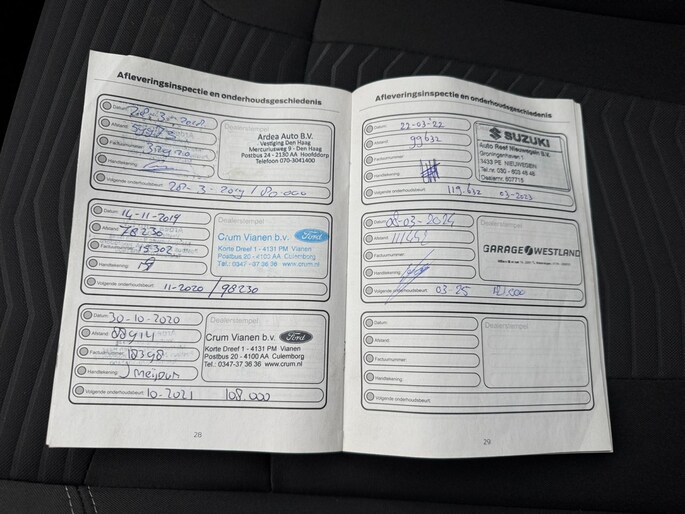 Afleveringsinspectie en onderhoudsgeschiedenis
Datum: 28-3-2018
Afstand:
Factuurnummer:
Handtekening:
Ardea Auto B.V.
Vestiging Den Haag
Mercuriusweg 9 - Den Haag
Postbus 24 - 2130 AA Hoofddorp
Telefoon 070-3041400
Volgende onderhoudsbeurt: 28-3-2019 / 80.000
Datum: 14-11-2019
Afstand: 78230
Factuurnummer: 15302
Handtekening:
Dealerstempel
Crum Vianen b.v. Ford
Korte Dreef 1 - 4131 PM Vianen
Postbus 20 - 4100 AA Culemborg
Tel.: 0347-37 36 36 www.crum.nl
Volgende onderhoudsbeurt: 11-2020 / 98230
Datum: 30-10-2020
Afstand: 88914
Factuurnummer: 18398
Handtekening:
Dealerstempel
Crum Vianen b.v. Ford
Korte Dreef 1 - 4131 PM Vianen
Postbus 20 - 4100 AA Culemborg
Tel.: 0347-37 36 36 www.crum.nl
Volgende onderhoudsbeurt: 10-2021 108.000
28
Afleveringsinspectie en onderhoudsgeschiedenis
Datum: 22-03-'22
Afstand: 99632
Factuurnummer:
Handtekening:
SUZUKI
Auto Reef Nieuwegein B.V.
Groningenhaven 1
3433 PE NIEUWEGEIN
Tel.nr. 030 - 603 45 46
Dealernr. 607715
Volgende onderhoudsbeurt: 119.632 03-2023
Datum: 08-03-2024
Afstand:
Factuurnummer:
Handtekening:
Dealerstempel
GARAGE WESTLAND
Volgende onderhoudsbeurt: 03-25
Datum:
Afstand:
Factuurnummer:
Handtekening:
Dealerstempel
Volgende onderhoudsbeurt:
29